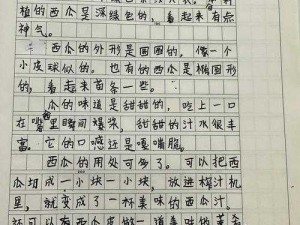 植的西瓜是深绿色的,看起来有点
神气。
西瓜的外形是圆圆的,像一个
小皮球似的。也有的西瓜是椭圆形
的,看起来苗条一些。
瓜的味道是甜甜的,吃上一口
在嘴里瞬间爆浆,甜甜的汁水很丰
富。它的口感还是嘎嘣脆。
西瓜的用处可多了。可以把西
瓜切成一小块一小块,放进榨汁机
里,就变成了一杯美味的西瓜汁。
还可以有西瓜皮做一道美味的